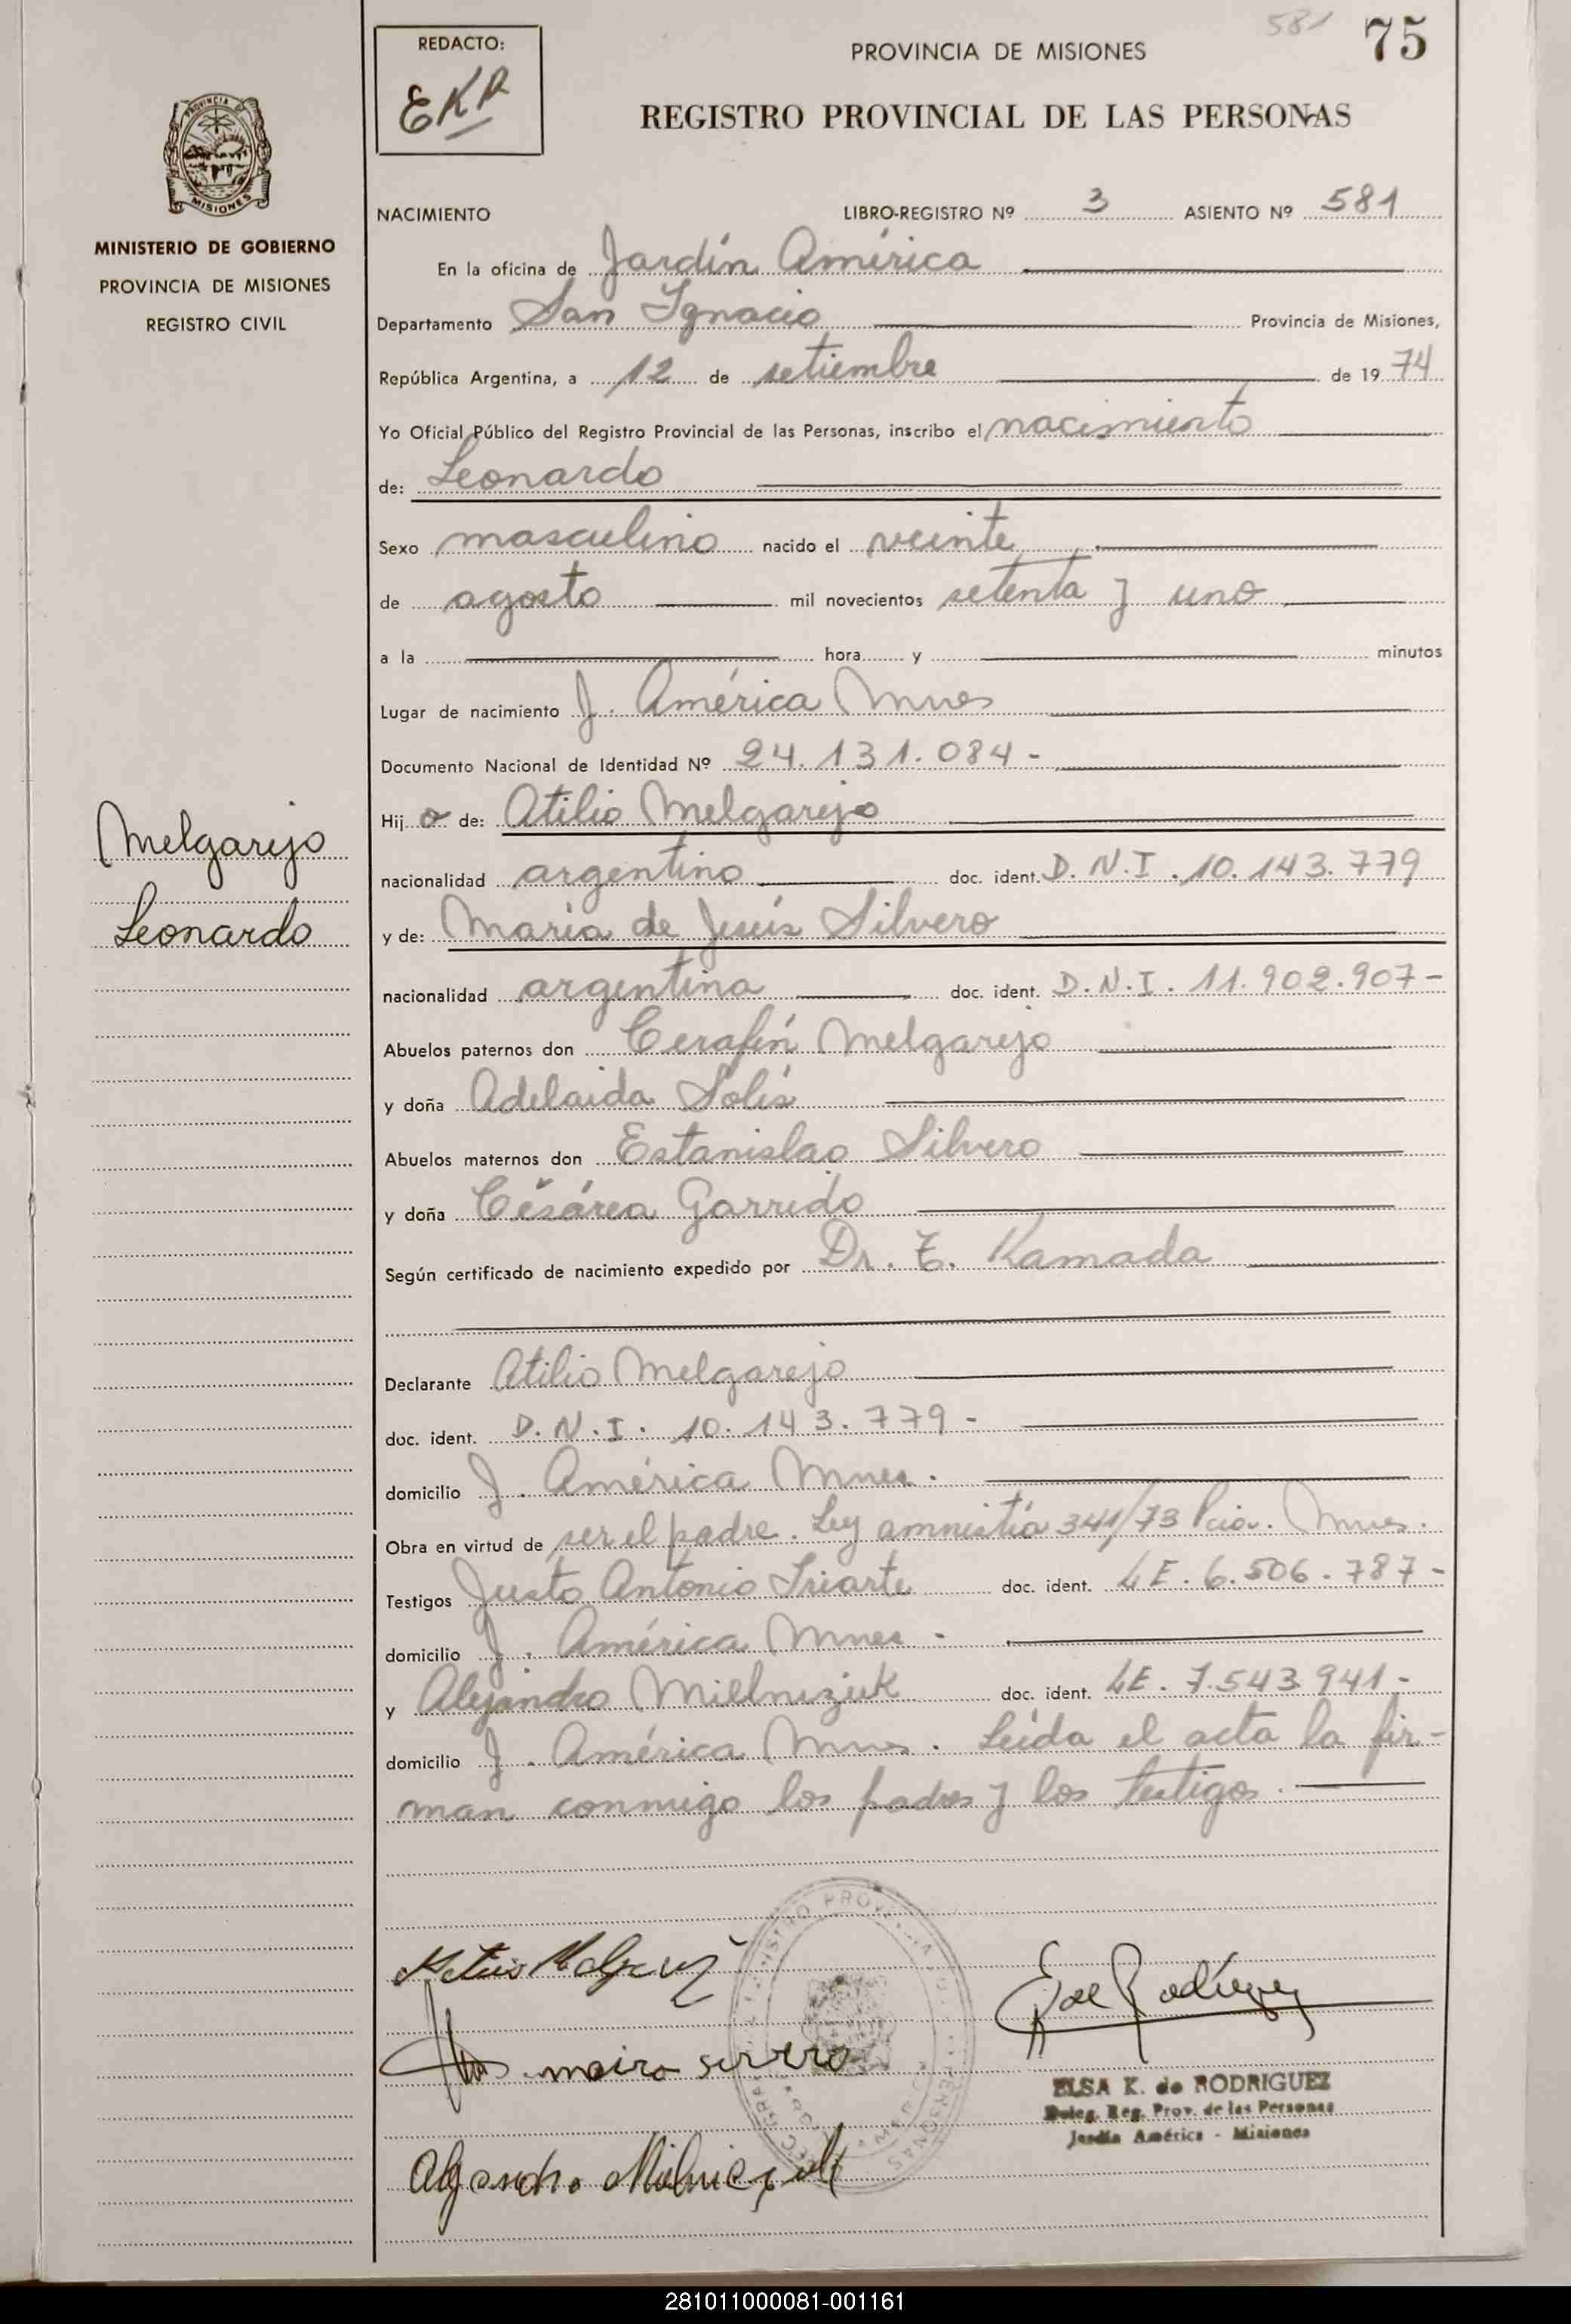 581 75
REDACTO:
EKR
PROVINCIA DE MISIONES
REGISTRO PROVINCIAL DE LAS PERSONAS
MISIONES
MINISTERIO DE GOBIERNO
PROVINCIA DE MISIONES
REGISTRO CIVIL
NACIMIENTO LIBRO-REGISTRO Nº 3 ASIENTO Nº 581
En la oficina de Jardín América
Departamento San Ignacio Provincia de Misiones,
República Argentina, a 12 de setiembre de 1974
Yo Oficial Público del Registro Provincial de las Personas, inscribo el nacimiento
de: Leonardo
Sexo masculino nacido el veinte
de agosto mil novecientos setenta y uno
a la hora y minutos
Lugar de nacimiento J. América Mnes
Documento Nacional de Identidad Nº 24.131.084-
Hijo de: Atilio Melgarejo
nacionalidad argentino doc. ident. D.N.I. 10.143.779
y de: María de Jesús Silvero
nacionalidad argentina doc. ident. D.N.I. 11.902.907-
Abuelos paternos don Cerafín Melgarejo
y doña Adelaida Solís
Abuelos maternos don Estanislao Silvero
y doña Césárea Garrido
Según certificado de nacimiento expedido por Dr. E. Kamada
Declarante Atilio Melgarejo
doc. ident. D.N.I. 10.143.779-
domicilio J. América Mnes.
Obra en virtud de ser el padre. Ley amnistía 341/73 Pcia. Mnes.
Testigos Justo Antonio Iriarte doc. ident. LE. 6.506.787-
domicilio J. América Mnes -
y Alejandro Mielniziuk doc. ident. LE. 7.543.941-
domicilio J. América Mnes. Leída el acta la fir-
man conmigo los padres y los testigos.
Melgarejo
Leonardo
ELSA K. de RODRIGUEZ
Deleg. Reg. Prov. de las Personas
Jardín América - Misiones
281011000081-001161